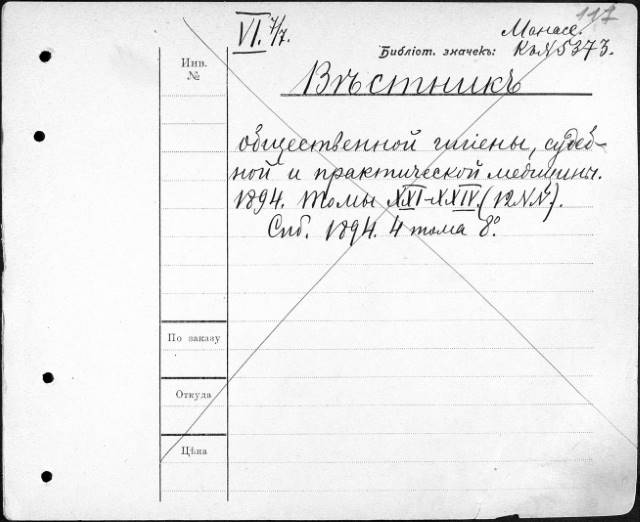 117
VI. 7/7.
Манасе.
Библіот. значекъ: Къ № 5373.
Инв. №
Вѣстникъ
общественной гигіены, судеб-
ной и практической медицины.
1894. Томы XXI-XXIV. (12 №№).
Спб. 1894. 4 тома 8º.
По заказу
Откуда
Цѣна